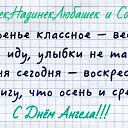 ек,Надинек,Любашек и Со
енье классное — вес
иду, улыбки не та
ня сегодня — воскресе
игу, что осень и сре
С Днём Ангела!!!